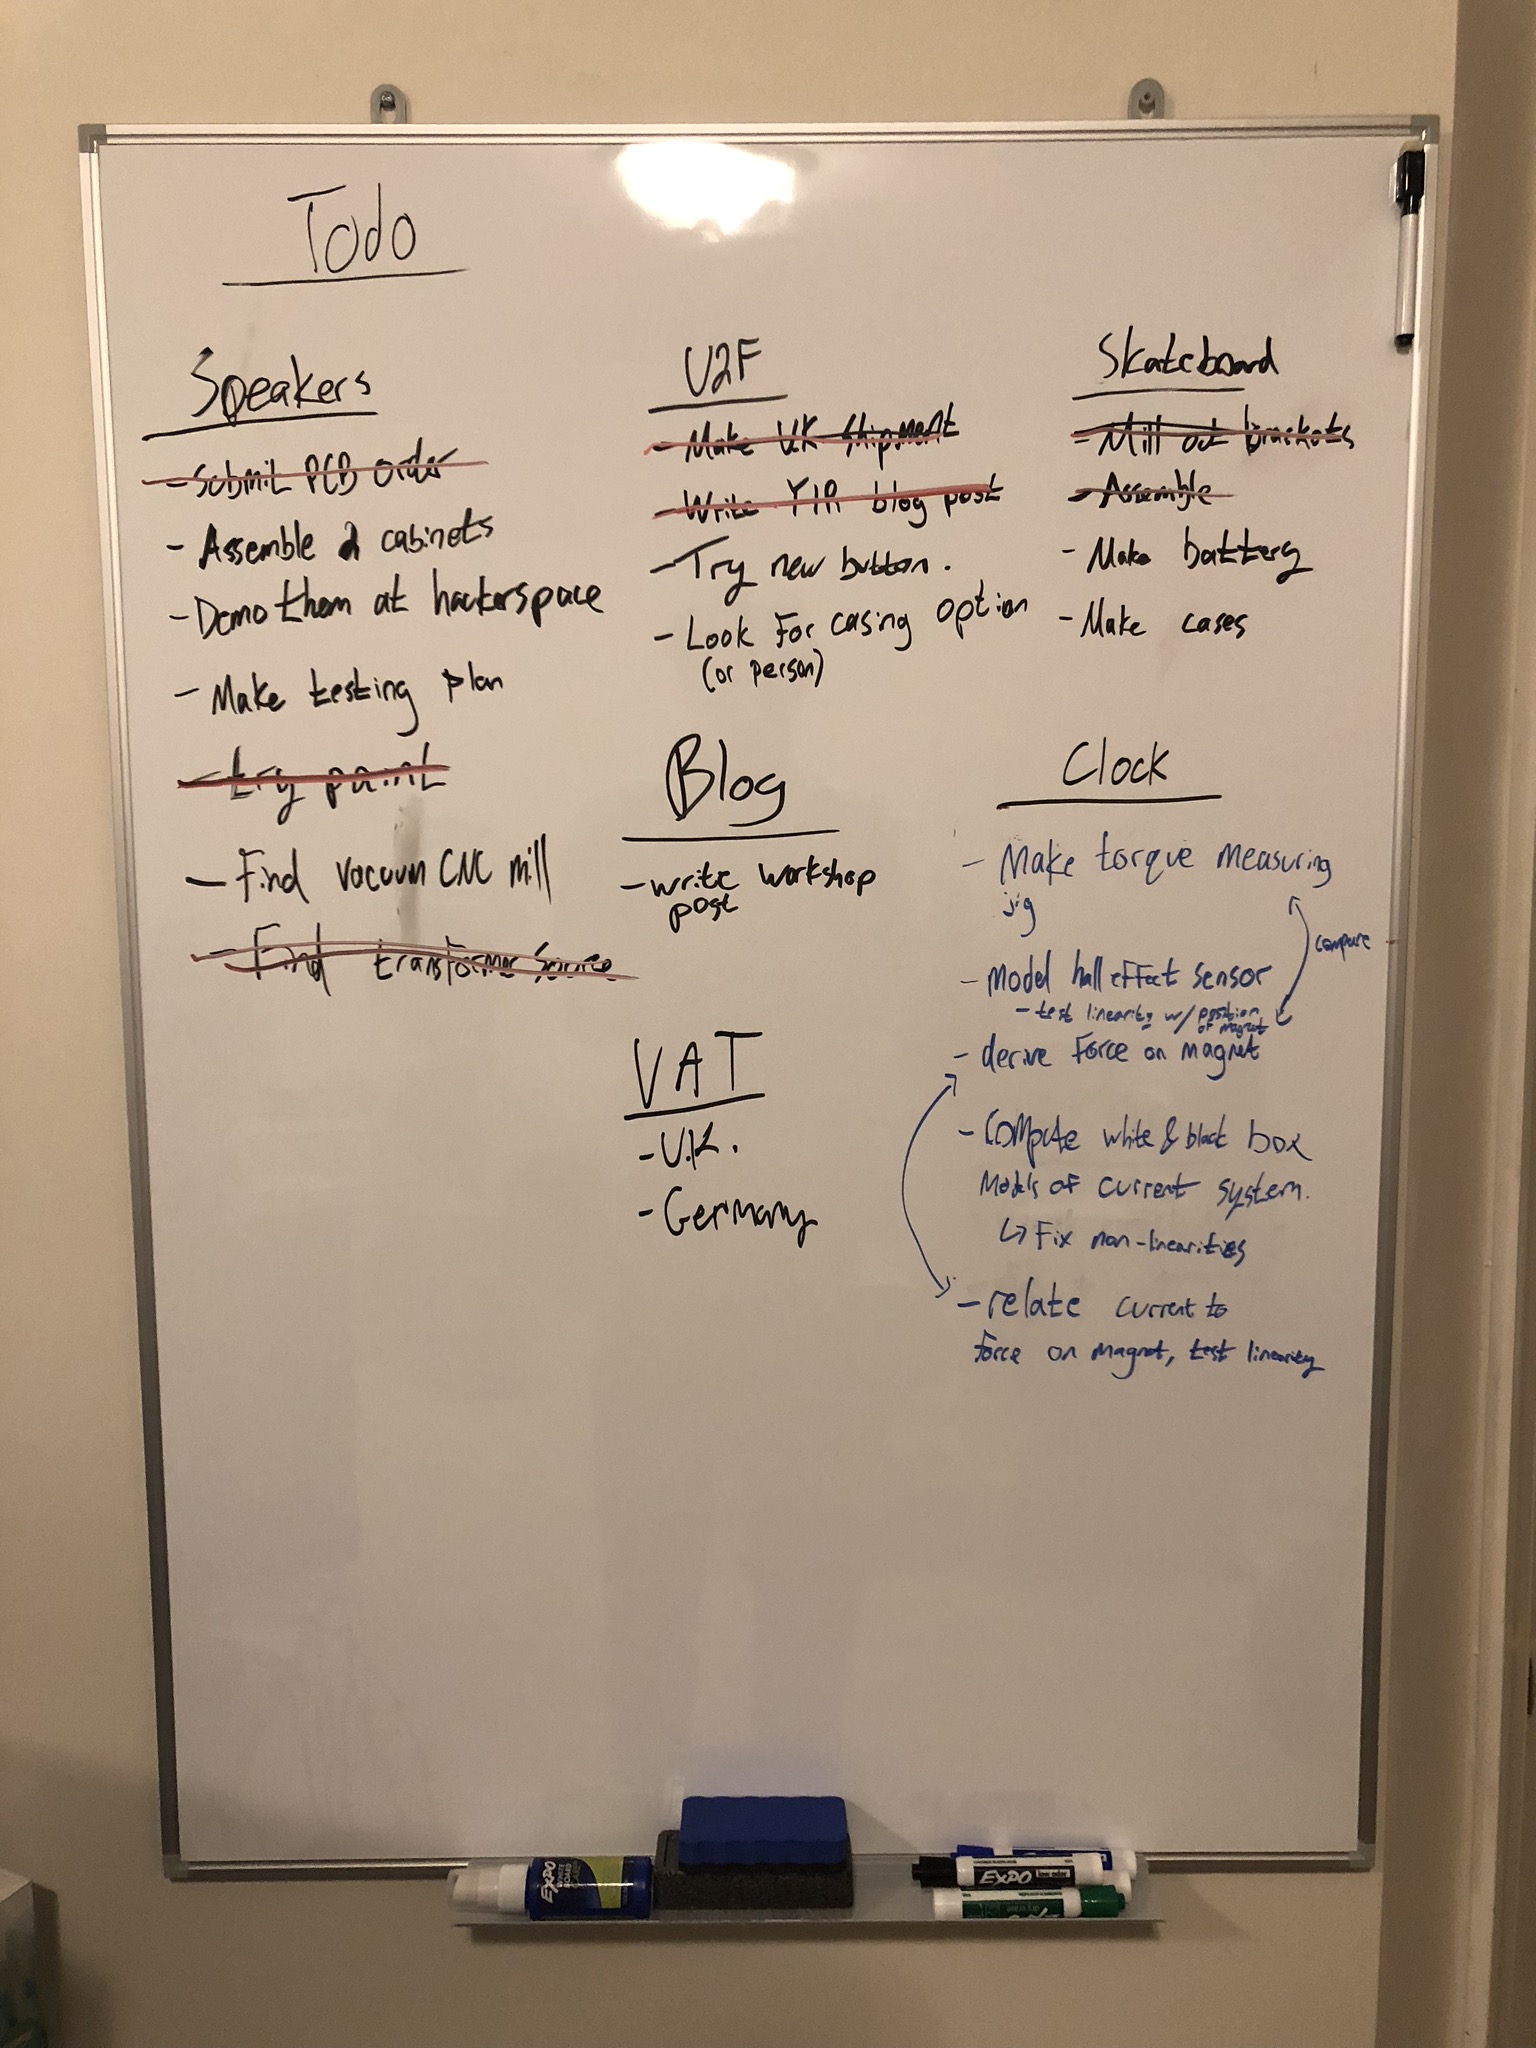 Todo
Speakers
- Submit PCB order
- Assemble 2 cabinets
- Demo them at hackerspace
- Make testing plan
- try paint
- Find vacuum CNC mill
- Find transformer source
U2F
- Make U.K shipment
- Write YIR blog post
- Try new button.
- Look for casing option
(or person)
Blog
- write workshop
post
VAT
- U.K.
- Germany
Skateboard
- Mill out brackets
- Assemble
- Make battery
- Make cases
Clock
- Make torque measuring
jig
compare
- Model hall effect sensor
- test linearity w/ position
of magnet
- derive Force on magnet
- Compute white & black box
Models of current system.
↳ Fix non-linearities
- relate current to
force on magnet, test linearity
EXPO
EXPO